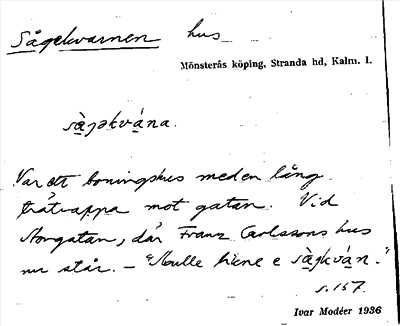 Sågekvarnen hus
Mönsterås köping, Stranda hd, Kalm. l.
sàjəkvána.
Var ett boningshus med en lång
trätrappa mot gatan. Vid
Storgatan, där Franz Carlssons hus
nu står. – "Kulle hiene e sàjkván."
s. 157.
Ivar Modéer 1936